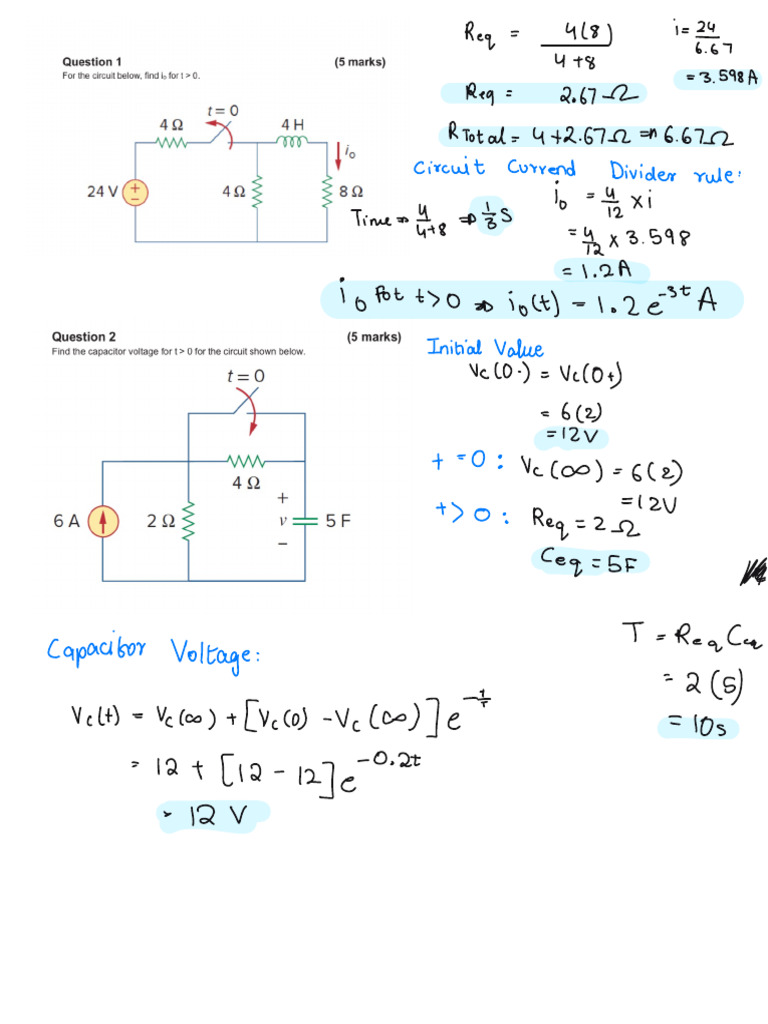 Question 1 (5 marks)
For the circuit below, find i₀ for t > 0.
t = 0
4 Ω
4 H
i₀
24 V
+
−
4 Ω
8 Ω
Req = 4(8)
4+8
Req = 2.67 Ω
i = 24
6.67
= 3.598 A
RTotal = 4+2.67Ω ⇒ 6.67Ω
Circuit Currend Divider rule:
Time ⇒ 4/4+8 ⇒ 1/3 S
i₀ = 4/12 × i
= 4/12 × 3.598
= 1.2A
i₀ fot t>0 ⇒ i₀(t) = 1.2e^-3t A
Question 2 (5 marks)
Find the capacitor voltage for t > 0 for the circuit shown below.
t = 0
4 Ω
6 A
2 Ω
+
v
−
5 F
Initial Value
Vc(0-) = Vc(0+)
= 6(2)
= 12V
t = 0: Vc(∞) = 6(2)
= 12V
t > 0: Req = 2 Ω
Ceq = 5F
T = Req Ceq
= 2(5)
= 10s
Capacitor Voltage:
Vc(t) = Vc(∞) + [Vc(0) - Vc(∞)] e^-t/τ
= 12 + [12 - 12] e^-0.2t
= 12 V